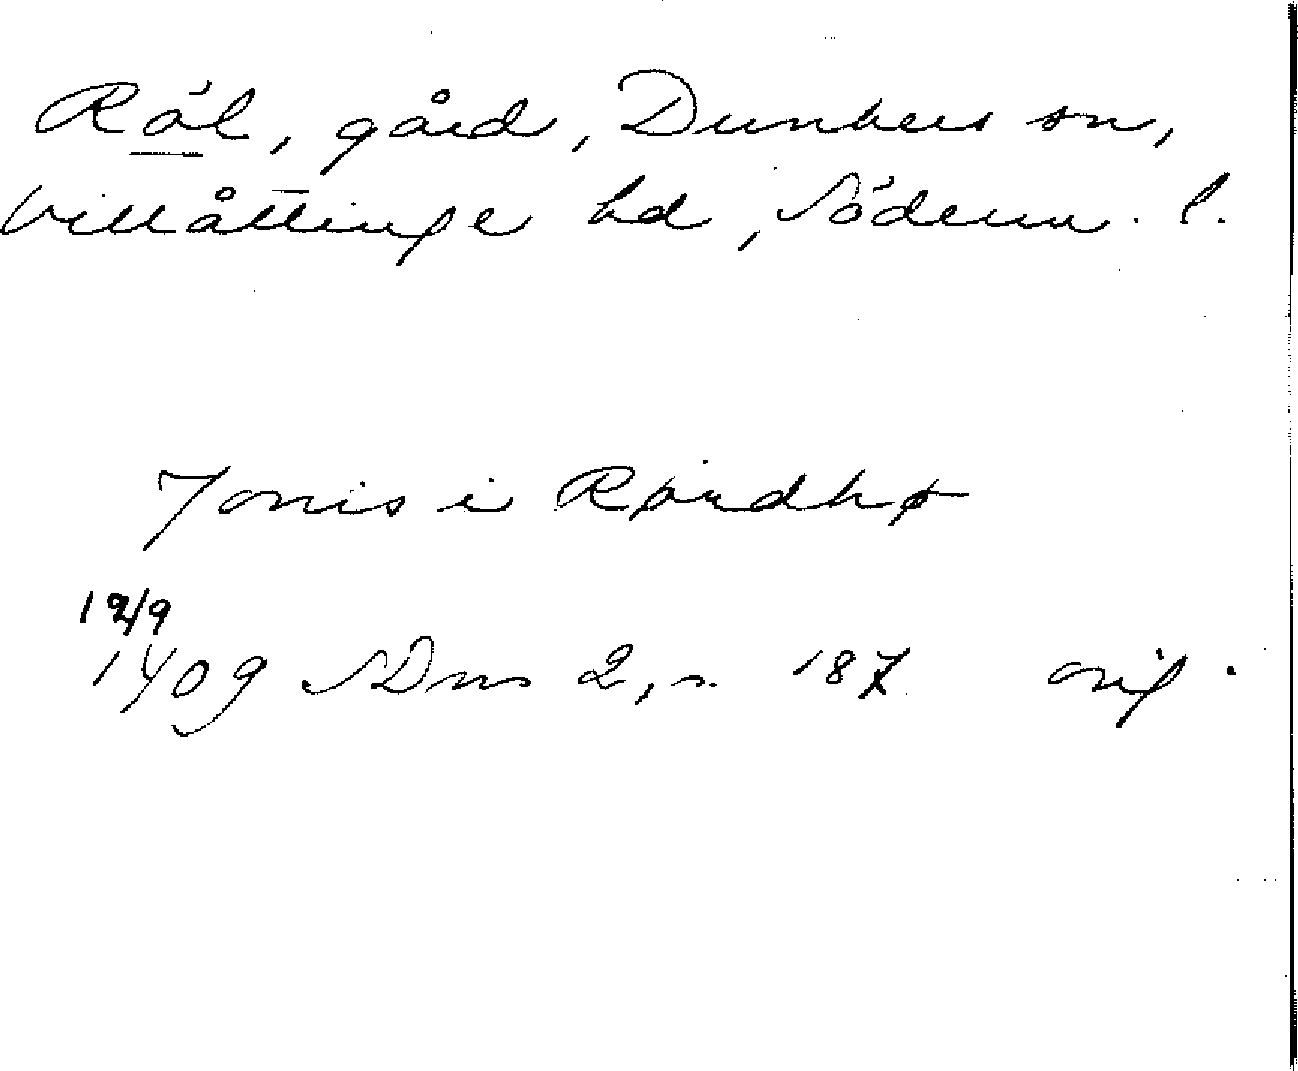 Röl, gård, Dunkers sn,
Villåttinge hd, Söderm. l.
Jonis i Rørdhø
12/9
1409 SDns 2, s. 187 orig.